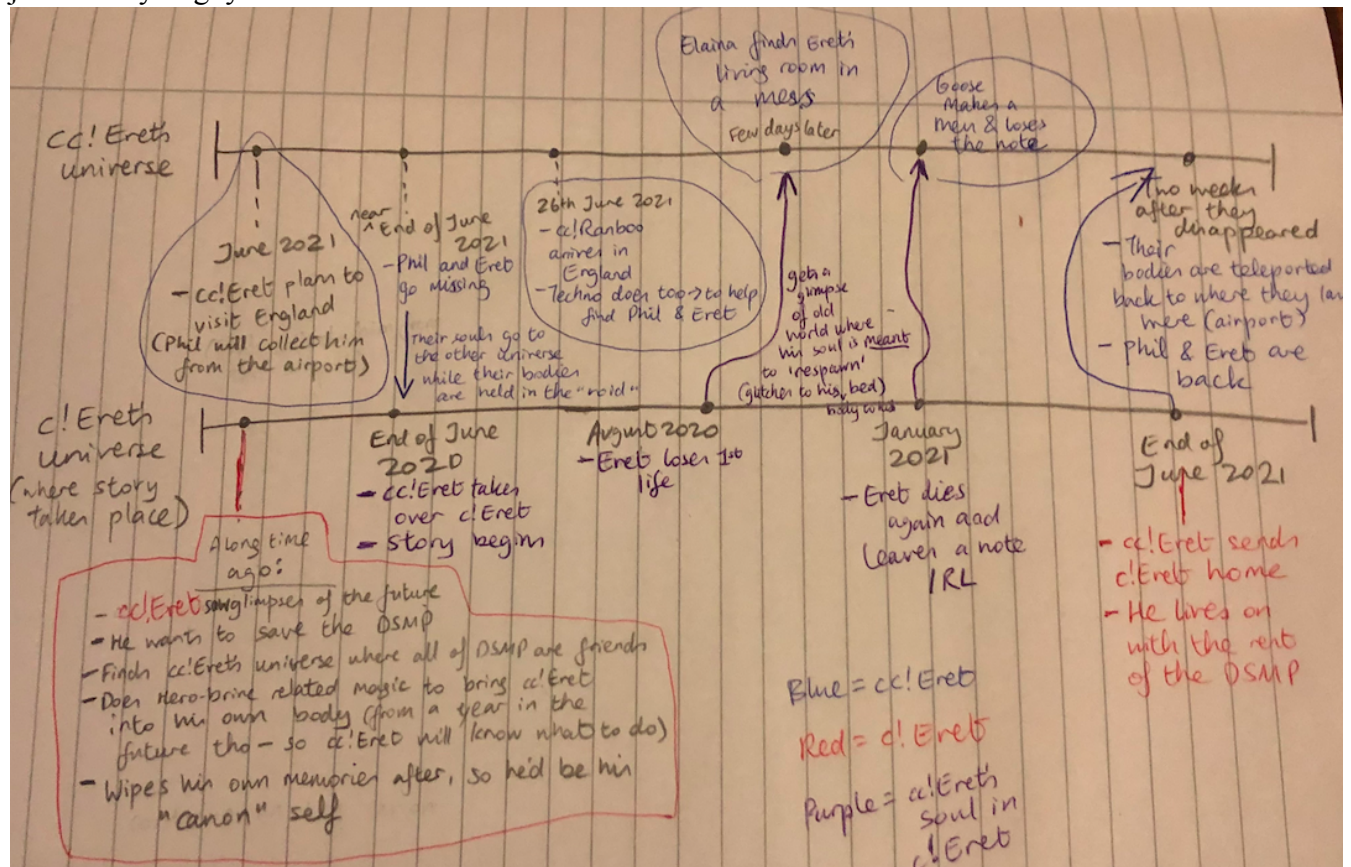 Elaina finds Eret's
living room in
a mess
Few days later
Goose
makes a
men & loses
the note
cc!Eret's
universe
June 2021
- cc!Eret plans to
visit England
(Phil will collect him
from the airport)
near
^End of June
2021
- Phil and Eret
go missing
Their souls go to
the other universe
while their bodies
are held in the "void"
26th June 2021
- cc!Ranboo
arrives in
England
- Techno does too → to help
find Phil & Eret
gets a
glimpse
of old
world where
his soul is meant
to 'respawn'
(glitches to his bed)
Two weeks
after they
disappeared
- Their
bodies are teleported
back to where they
were (airport)
- Phil & Eret are
back
c!Eret's
universe
(where story
takes place)
End of June
2020
- cc!Eret takes
over c!Eret
- story begins
August 2020
- Eret loses 1st
life
January
2021
- Eret dies
again and
leaves a note
IRL
End of
June 2021
- cc!Eret sends
c!Eret home
- He lives on
with the rest
of the DSMP
A long time
ago:
- cc!Eret saw glimpses of the future
- He wants to save the DSMP
- Finds cc!Eret's universe where all of DSMP are friends
- Does Hero-brine related magic to bring cc!Eret
into his own body (from a year in the
future tho - so cc!Eret will know what to do)
- Wipes his own memories after, so he'd be his
"canon" self
Blue = cc!Eret
Red = c!Eret
Purple = cc!Eret's
soul in
c!Eret